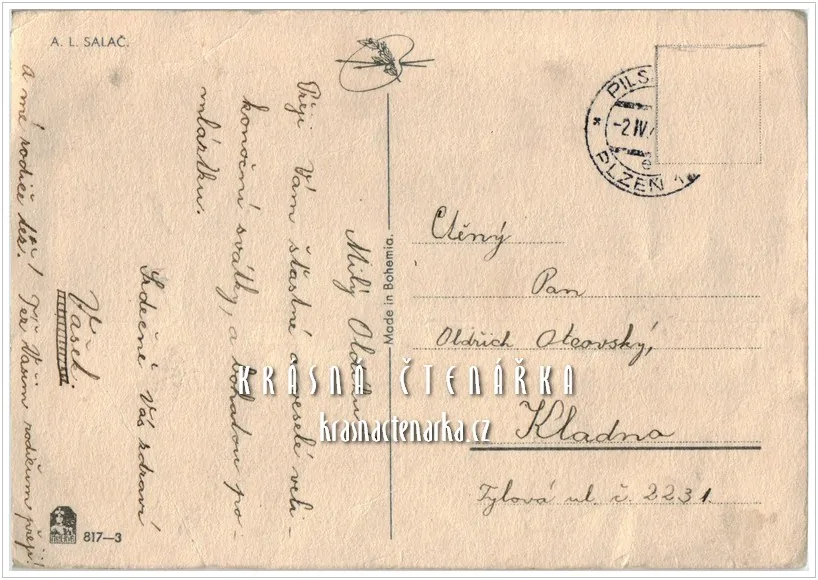 A. L. SALAČ.
Milý Oldříku
Přeji Vám šťastné a veselé veli-
konoční svátky, a bohatou po-
mlázku.
Srdečně Vás zdraví
Vašek.
a mé rodiče též! Též Vašim rodičum přeji!
817—3
Made in Bohemia.
PILS
-2.IV.
PLZEŇ 1
Ctěný
Pan
Oldřich Otcovský,
Kladno
Tylová ul. č. 2231.
KRÁSNÁ ČTENÁŘKA
krasnactenarka.cz